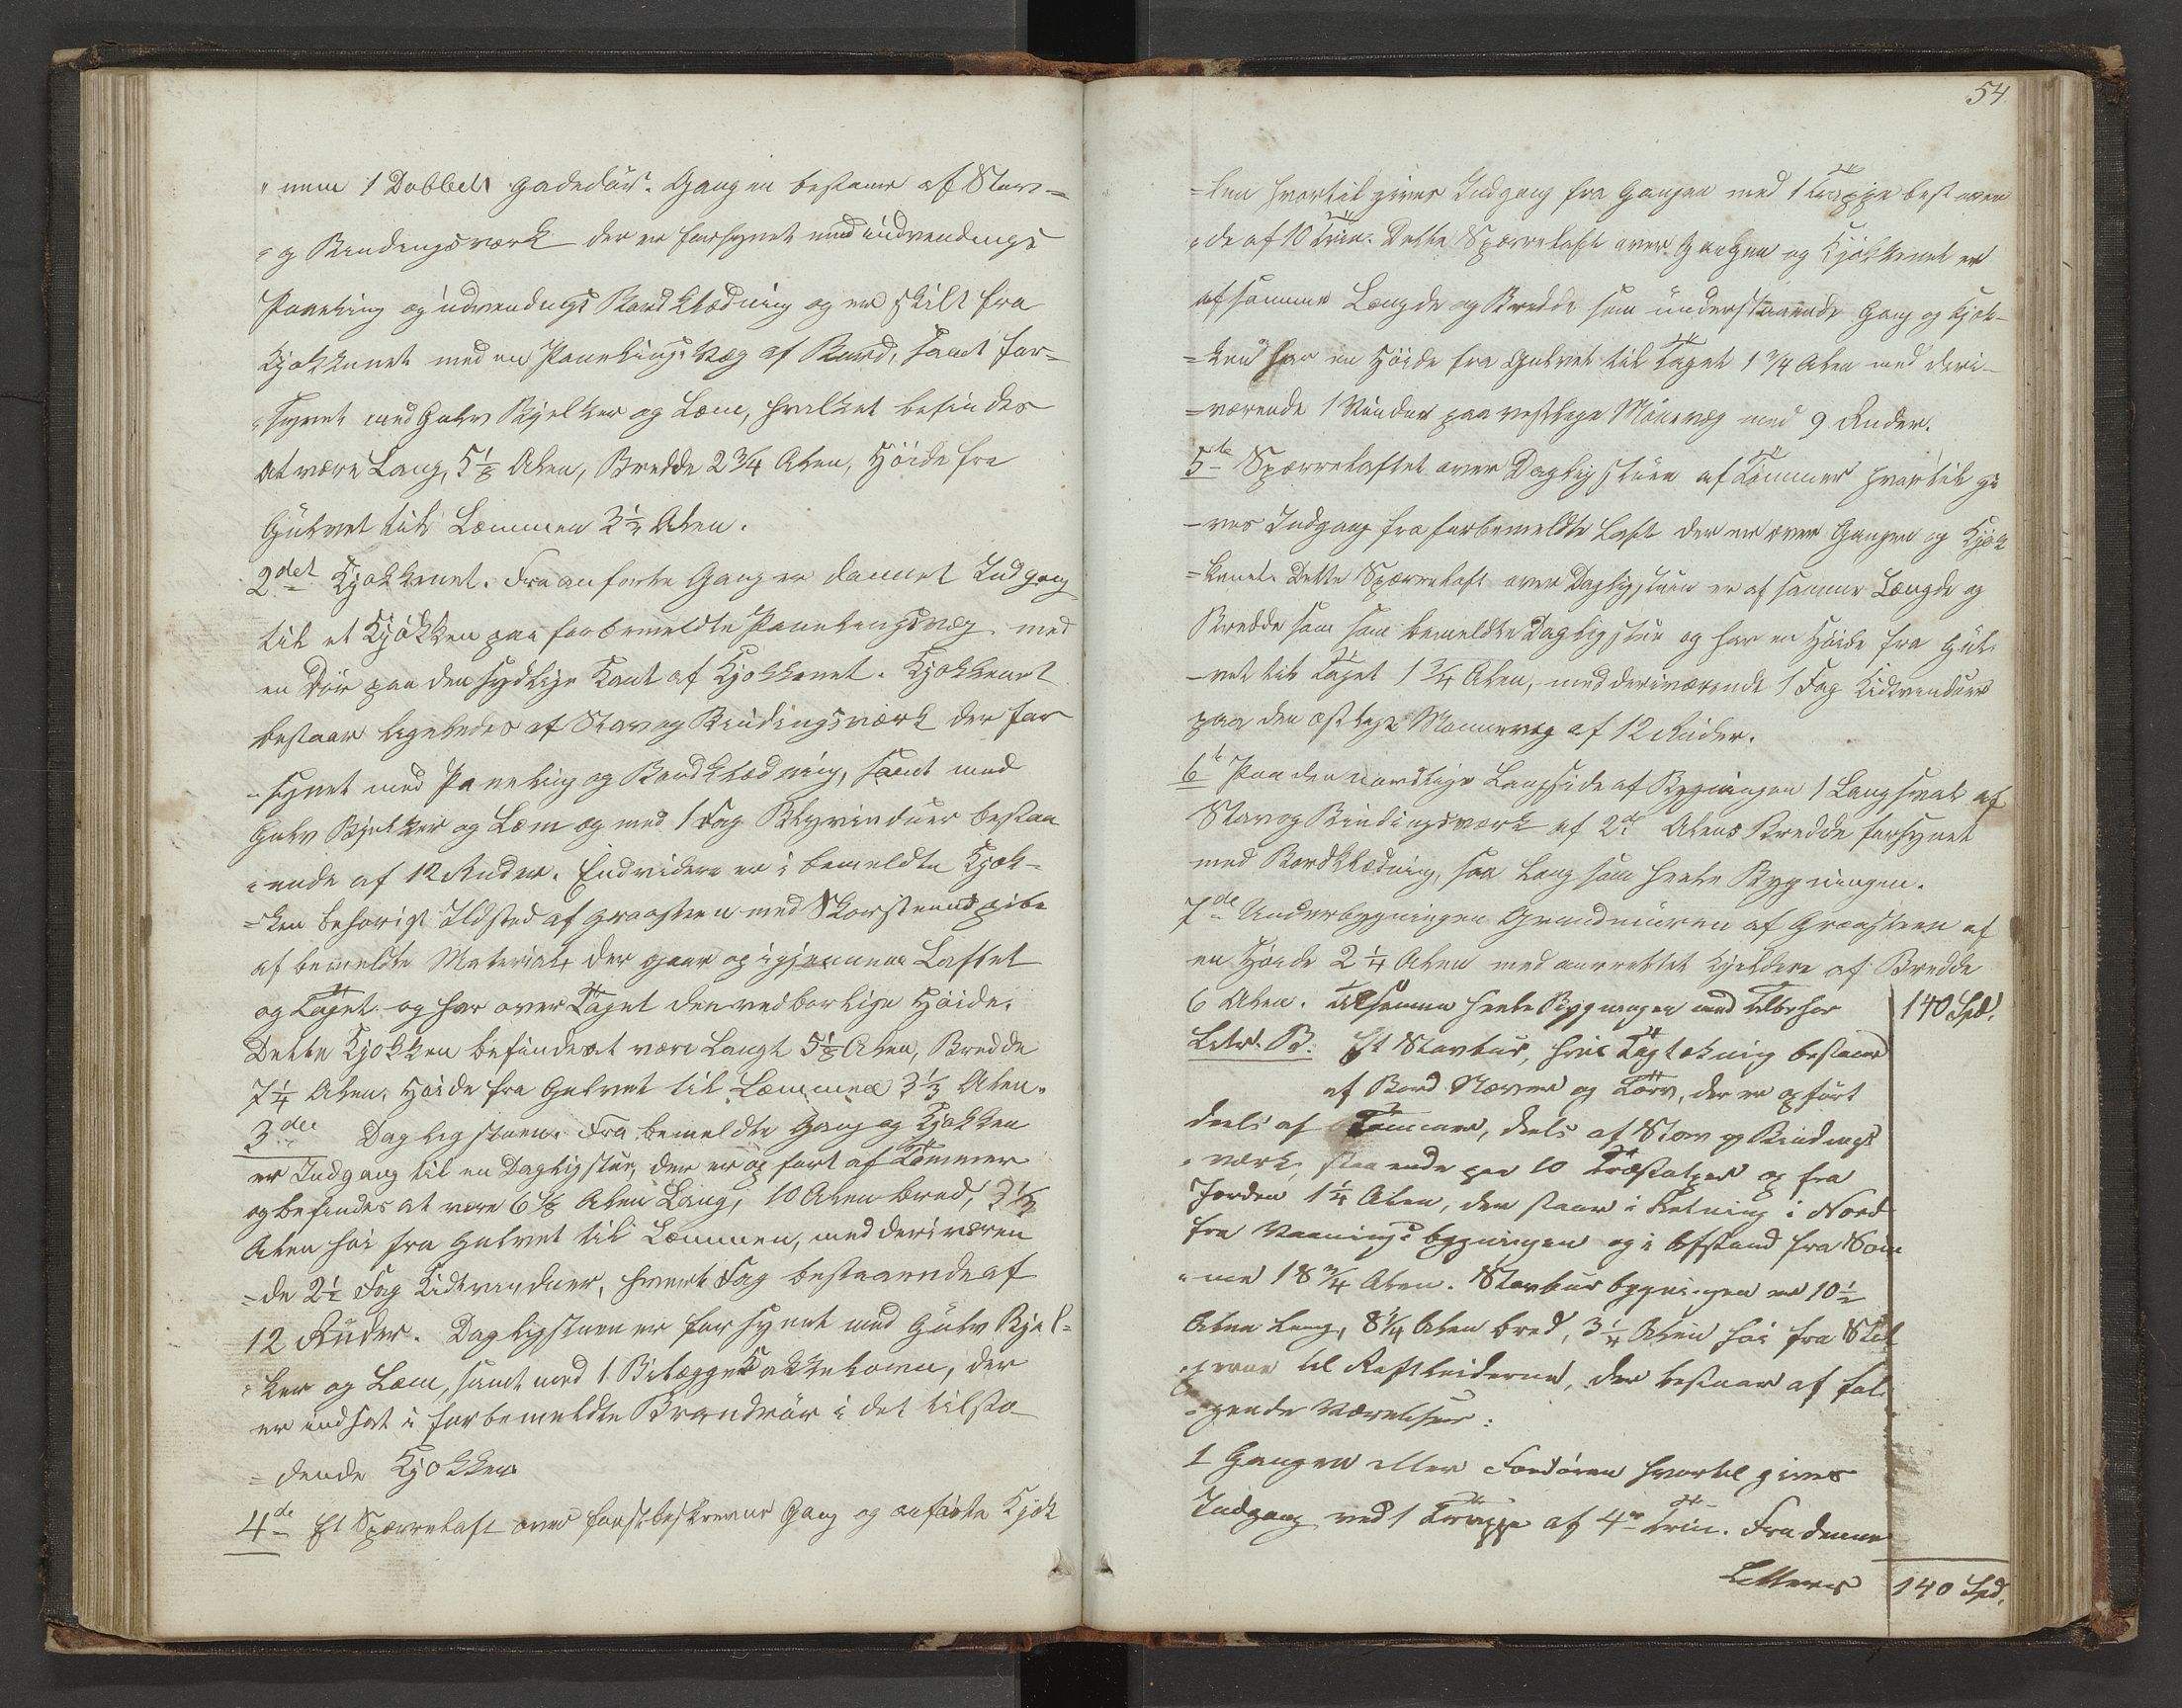 "nem 1 Dobbelt Gadedør. Gangen bestaaer af Stav=
"g Bindingsværk der er forsynet med indvendings
Paneling og udvendings Bordklædning og er skilt fra
Kjøkkenet med en Panelings Væg af Bord, samt for=
"synet med Gulv Bjelker og Læm, hvilket befindes
at være Lang, 5 1/8 Alen, Bredde 2 3/4 Alen, Høide fra
Gulvet til Læmmen 3 1/2 Alen.
2det Kjøkkenet. Fra anførte Gang er dannet Indgang
til et Kjøkken paa forbemeldte Panelingsvæg med
en Dør paa den sydlige Kant af Kjøkkenet. Kjøkkenet
bestaar ligeledes af Stav og Bindingsværk der for
"synet med Paneling og Bordklædning, samt med
Gulv Bjelker og Læm og med 1 Fag Blyvinduer bestaa
"ende af 12 Ruder. Endvidere er i bemeldte Kjøk=
=ken behørigt Ildsted af Graasteen med Skorsteenspibe
af bemeldte Material, der gaar op igjennem Loftet
og Taget og har over Taget den vedbørlige Høide.
Dette Kjøkken befindes at være Langt 5 1/8 Alen, Bredde
7 1/4 Alen. Høide fra Gulvet til Læmmen 3 1/2 Alen.
3die Dagligstuen. Fra bemeldte Gang og Kjøkken
er Indgang til en Dagligstue, der er opført af Tømmer
og befindes at være 6 1/8 Alen Lang, 10 Alen bred, 3 1/2
Alen høi fra Gulvet til Læmmen, med deri væren
=de 2 1/2 Fag Kidtvinduer, hvert Fag bestaaende af
12 Ruder. Dagligstuen er forsynet med Gulv Bjel=
"ker og Læm, samt med 1 Bilægger Kakkelovn, der
er indsat i forbemeldte Brandrør i det tilstø
=dende Kjøkken
4de Et Sperreloft over førstbeskrevne Gang og anførte Kjøk
54
=ken hvortil gives Indgang fra Gangen med 1 Trappe bestaaen
"de af 10 Trin. Dette Spærreloft over Gangen og Kjøkkenet er
af samme Længde og Bredde som understaaende Gang og Kjøk-
=ken har en Høide fra Gulvet til Taget 1 3/4 Alen med deri-
=værende 1 Vindue paa vestlige Mønevæg med 9 Ruder.
5te Spærreloftet over Dagligstuen af Tømmer hvortil gi
-ves Indgang fra forbemeldte Loft der er over Gangen og Kjøk
=kenet. Dette Spærreloft over Dagligstuen er af samme Længde og
Bredde som som bemeldte Dagligstue og har en Høide fra Gul-
-vet til Taget 1 3/4 Alen, med deriværende 1 Fag Kidtvinduer
paa den østlige Mønnevæg af 12 Ruder.
6te Paa den nordlige Langside af Bygningen 1 Langsval af
Stav og Bindingsværk af 2de Alens Bredde forsynet
med Bordklædning, saa lang som heele Bygningen.
7de Underbygningen Grundmuren af Graasteen af
en Høide 2 1/4 Alen med anrettet Kjeldere af Bredde
6 Alen. Alsamen heele Bygningen med tilbehør 140 Spd.
Litr. B. Et Stavbur, hvis Tagtækning bestaar
af Bord Næver og Torv, der er opført
deels af Tømmer, deels af Stav og Bindings
"værk, staaende paa 10 Træstolper og fra
Jorden 1 1/4 Alen, der staar i Retning i Nord
fra Vaaningsbygningen og i Afstand fra Sam
"me 18 3/4 Alen. Stavbursbygningen er 10 1/2
Alen lang, 8 1/4 Alen bred, 3 1/4 Alen høi fra Stol
"perne til Raftleiderne, der bestaar af føl-
"gende Værelser:
1 Gangen eller Fordøren hvortil gives
Indgang ved 1 Trappe af 4re Trin. Fra denne
Latteres 140 Spd.